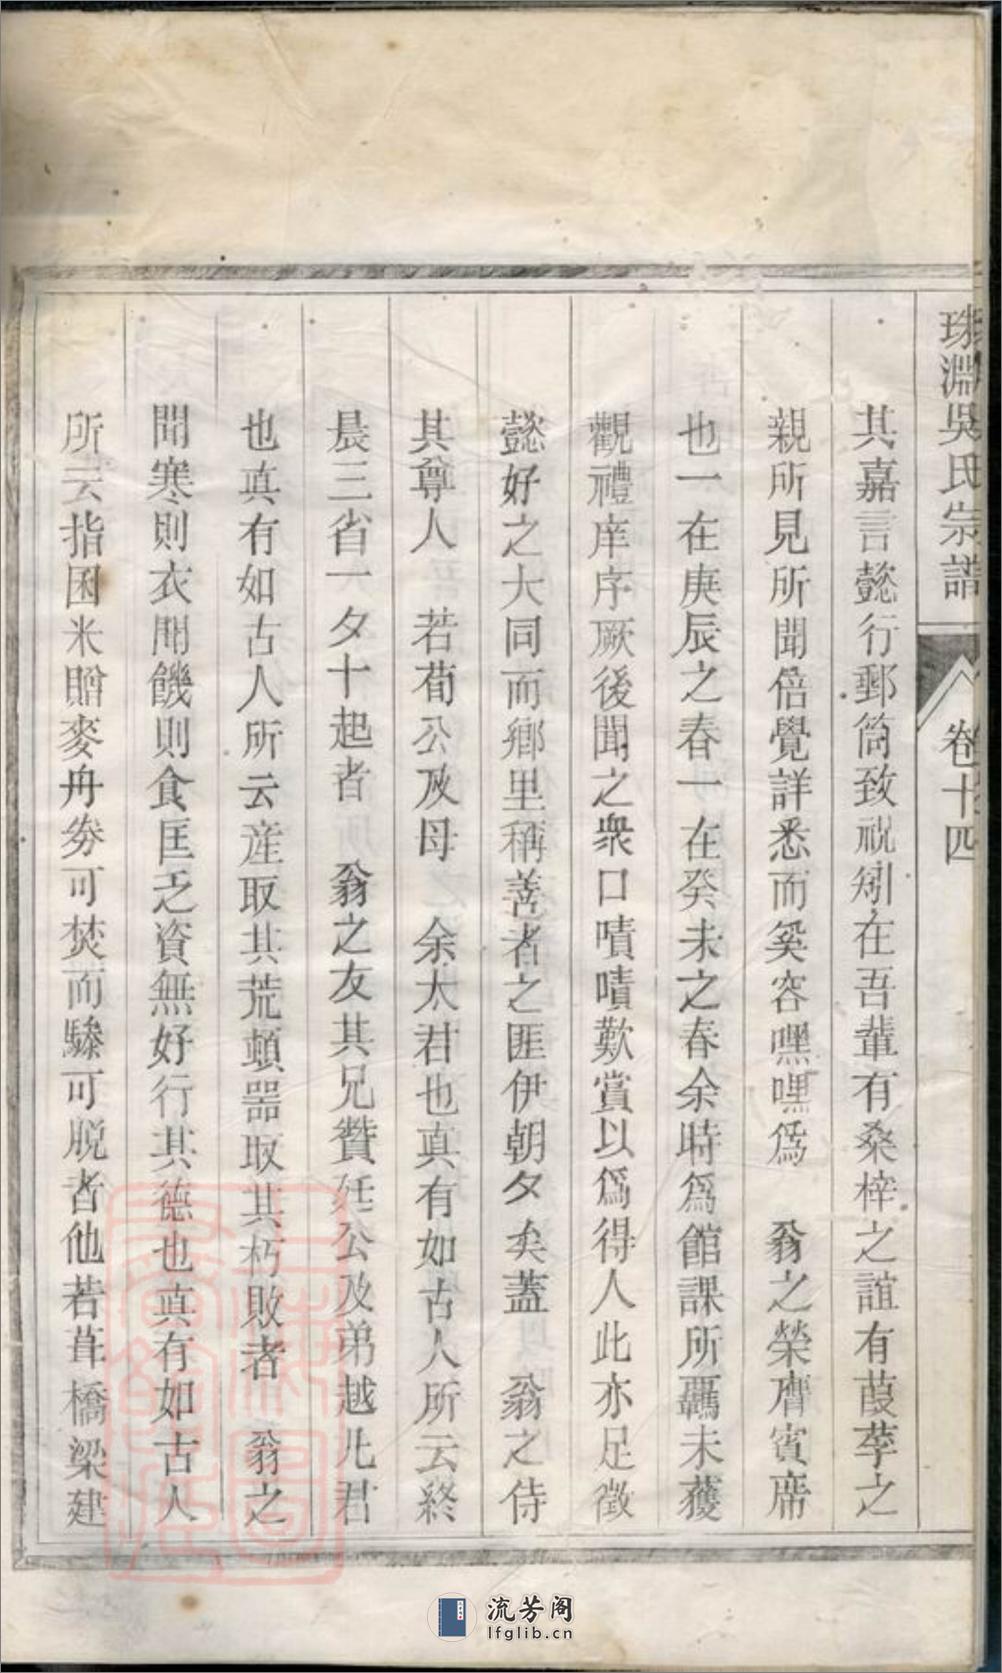 珠淵吳氏宗譜 卷十四
其嘉言懿行郵筒致祝矧在吾輩有桑梓之誼有葭莩之
親所見所聞倍覺詳悉而奚容嘿嘿爲 翁之榮膺賓席
也一在庚辰之春一在癸未之春余時爲館課所羈未獲
觀禮庠序厥後聞之衆口嘖嘖歎賞以爲得人此亦足徵
懿好之大同而鄉里稱善者之匪伊朝夕矣蓋 翁之侍
其尊人 若荀公及母 余太君也真有如古人所云終
晨三省一夕十起者 翁之友其兄贊廷公及弟越凡君
也真有如古人所云産取其荒頓噐取其朽敗者 翁之
聞寒則衣聞饑則食匡乏資無好行其德也真有如古人
所云指囷米贈麥舟劵可焚而驂可脱者他若葺橋梁建
流芳阁
lfglib.cn